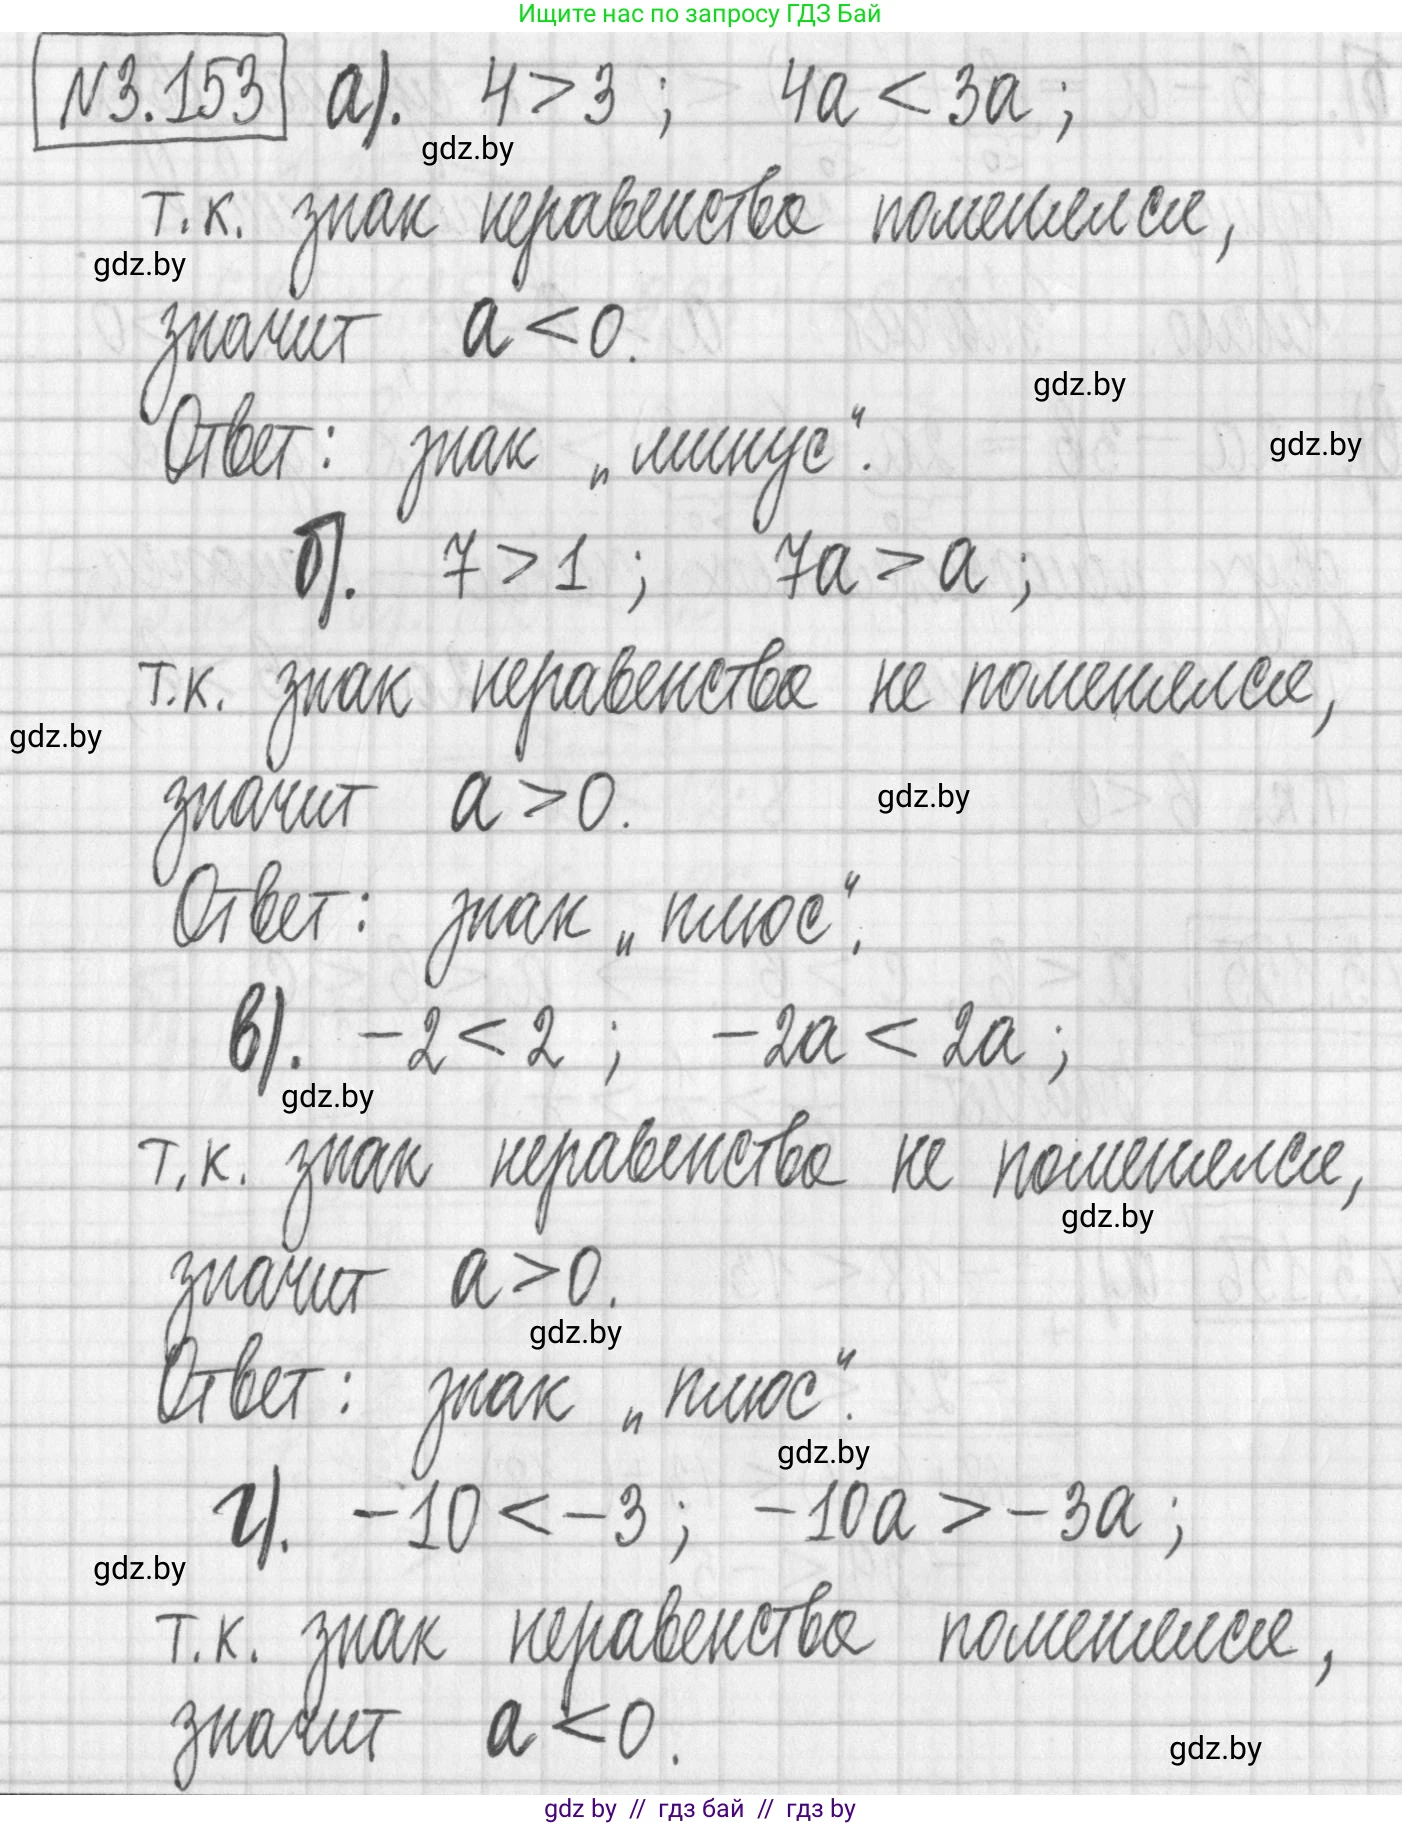 Ищите нас по запросу ГДЗ Бай
N3.153 а). 4>3 ; 4a<3a ;
gdz.by
т.к. знак неравенства поменялся,
gdz.by
значит a<0.
gdz.by
Ответ: знак „минус“.
gdz.by
б). 7>1 ; 7a>a ;
т.к. знак неравенства не поменялся,
gdz.by
значит a>0.
gdz.by
Ответ: знак „плюс“.
в). -2<2 ; -2a<2a ;
gdz.by
т.к. знак неравенства не поменялся,
gdz.by
значит a>0.
gdz.by
Ответ: знак „плюс“.
gdz.by
г). -10<-3 ; -10a>-3a ;
gdz.by
т.к. знак неравенства поменялся,
значит a<0.
gdz.by
gdz by // гдз бай // гдз by